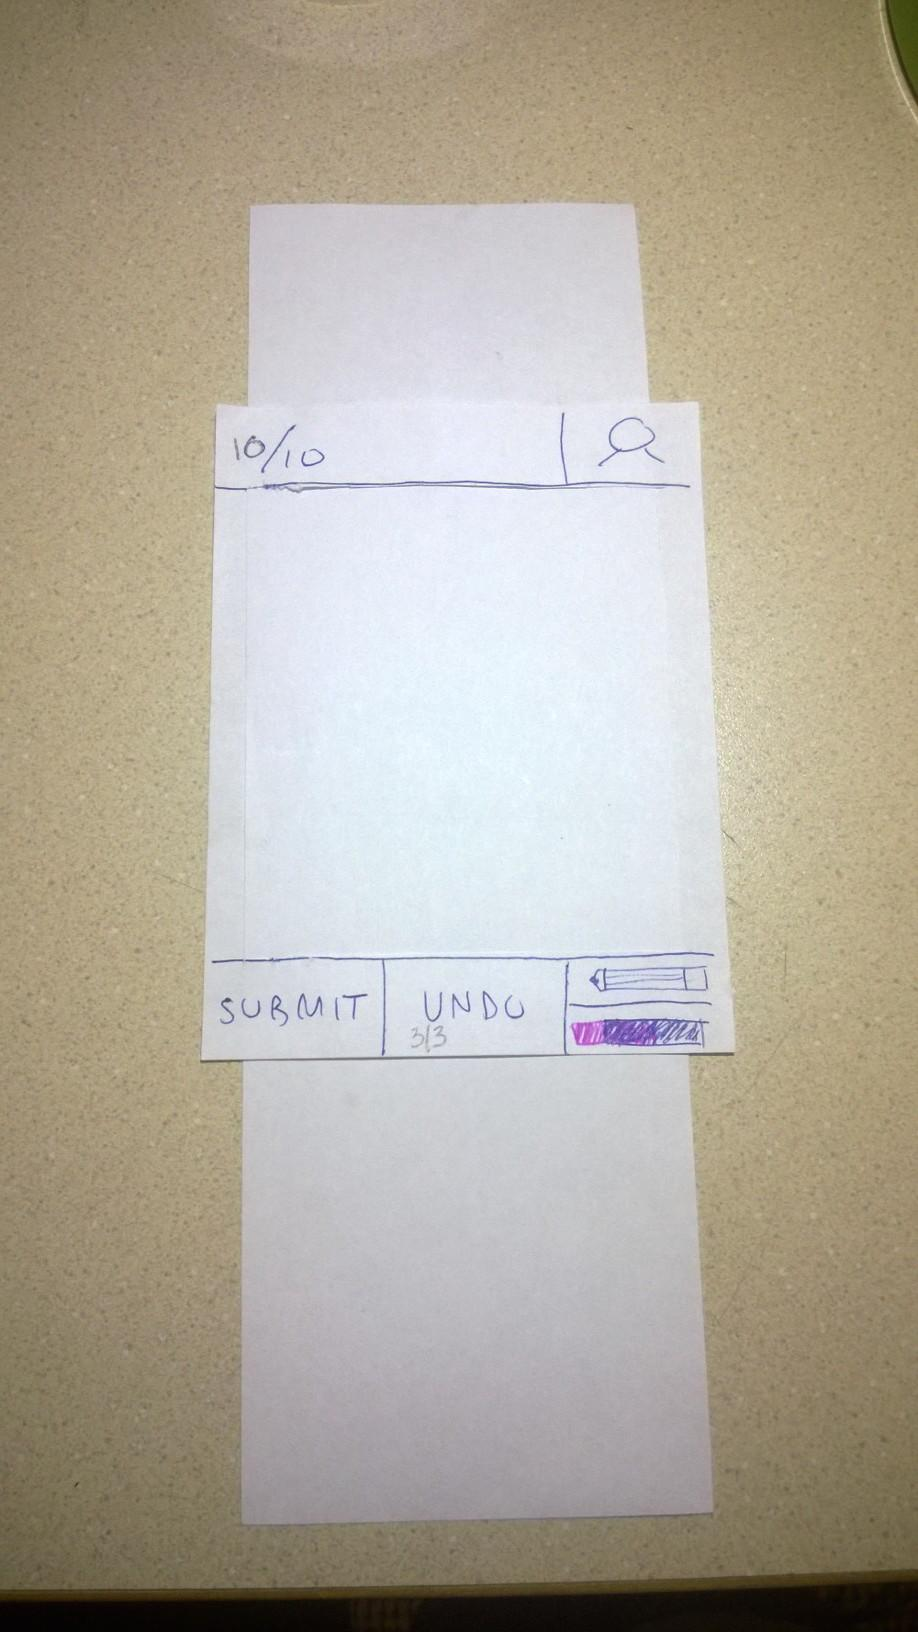 10/10
SUBMIT
UNDO
3/3